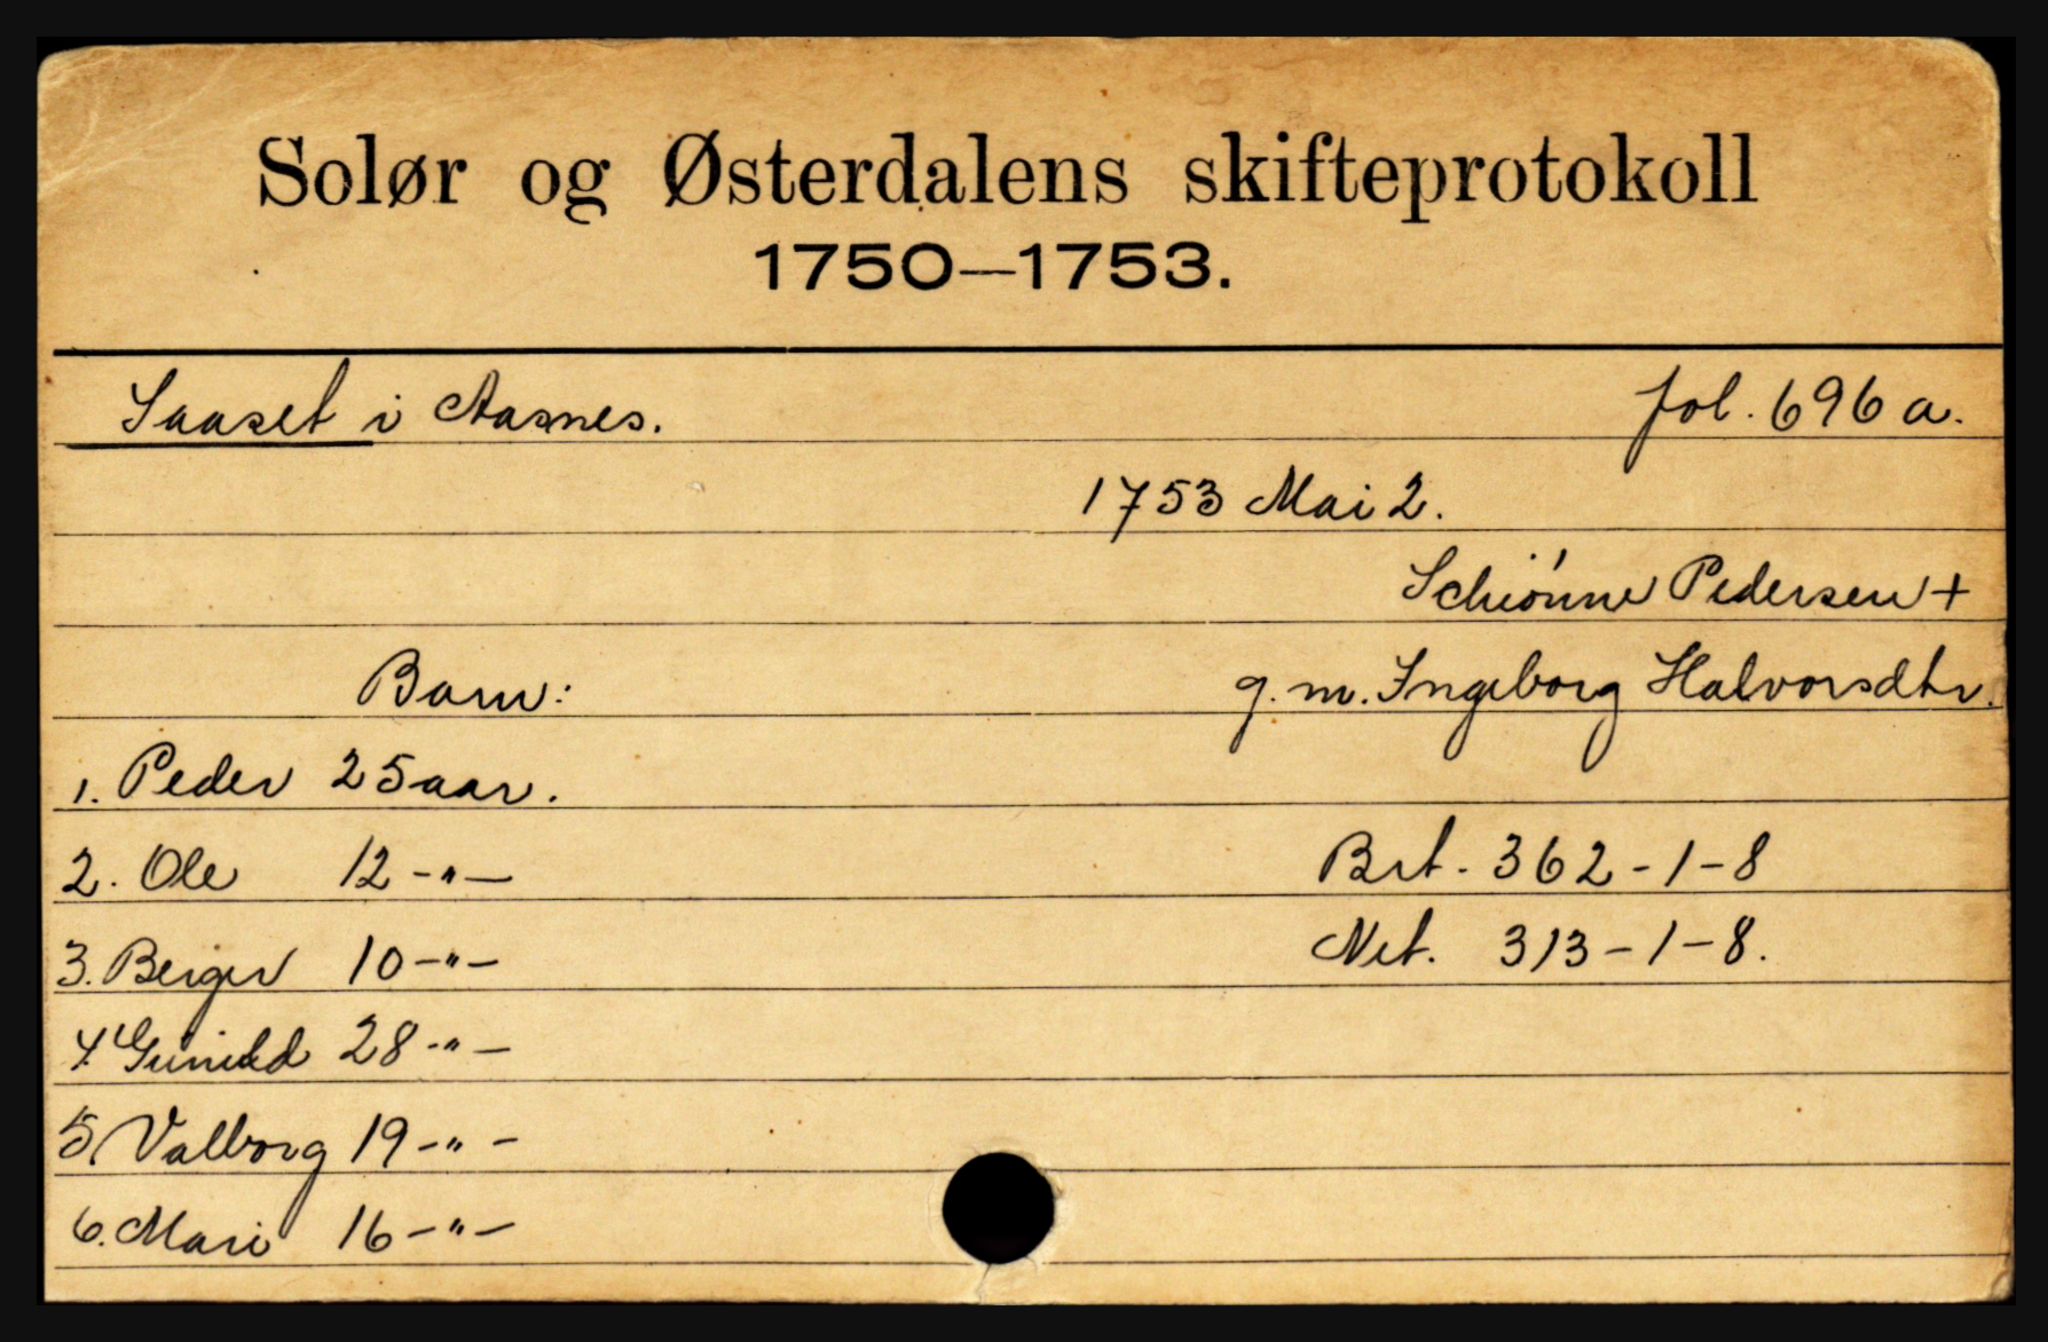 Solør og Østerdalens skifteprotokoll
1750—1753.
Saaset i Aasnes. fol. 696 a.
1753 Mai 2.
Schiønne Pedersen +
Barn: g. m. Ingeborg Halvorsdtr.
1. Peder 25 aar.
2. Ole 12 -"- Brt. 362-1-8
3. Berger 10 -"- Net. 313-1-8.
4. Gunild 28 -"-
5. Valborg 19 -"-
6. Mari 16 -"-